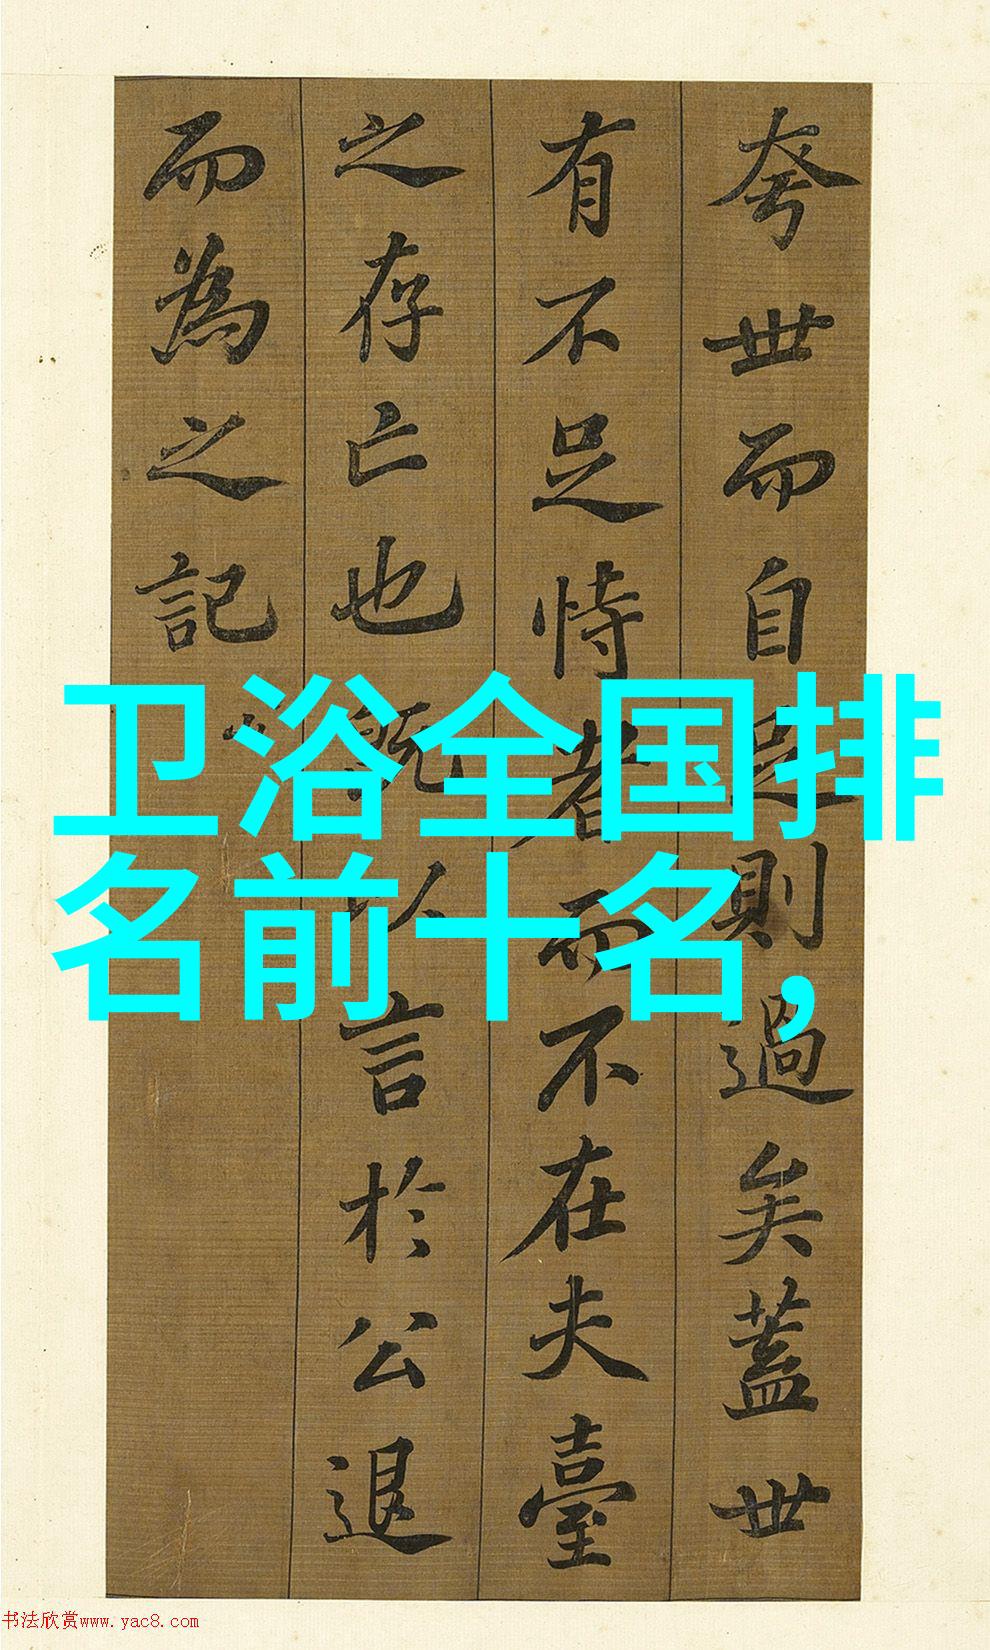 夸世而自足則過矣蓋世
有不足恃者而不在夫臺
之存亡也既以言於公退
而為之記
卫浴全国排
名前十名，
书法欣赏www.yac8.com